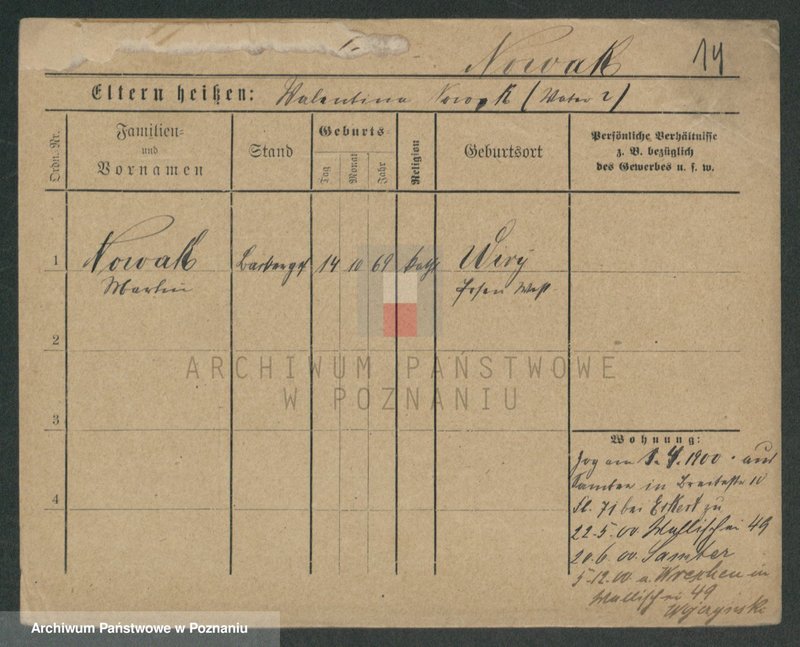 Nowak 14
Eltern heißen: Walentina Nowak (Vater ?)
Ordn. Nr.
Familien-
und
Vornamen
Stand
Geburts-
Tag
Monat
Jahr
Religion
Geburtsort
Persönliche Verhältnisse
z. B. bezüglich
des Gewerbes u. s. w.
1 Nowak 14 10 69 kath Wiry
Martin Posen West
2
3
4
ARCHIWUM PAŃSTWOWE
W POZNANIU
Wohnung:
Zog am 4. 1900 aus
Samter in Breitestr 10
St. 71 bei zu
22-5.00 Wallischei 49
20.6.00 Samter
5-12.00 a. Wreschen in
Wallischei 49
Archiwum Państwowe w Poznaniu